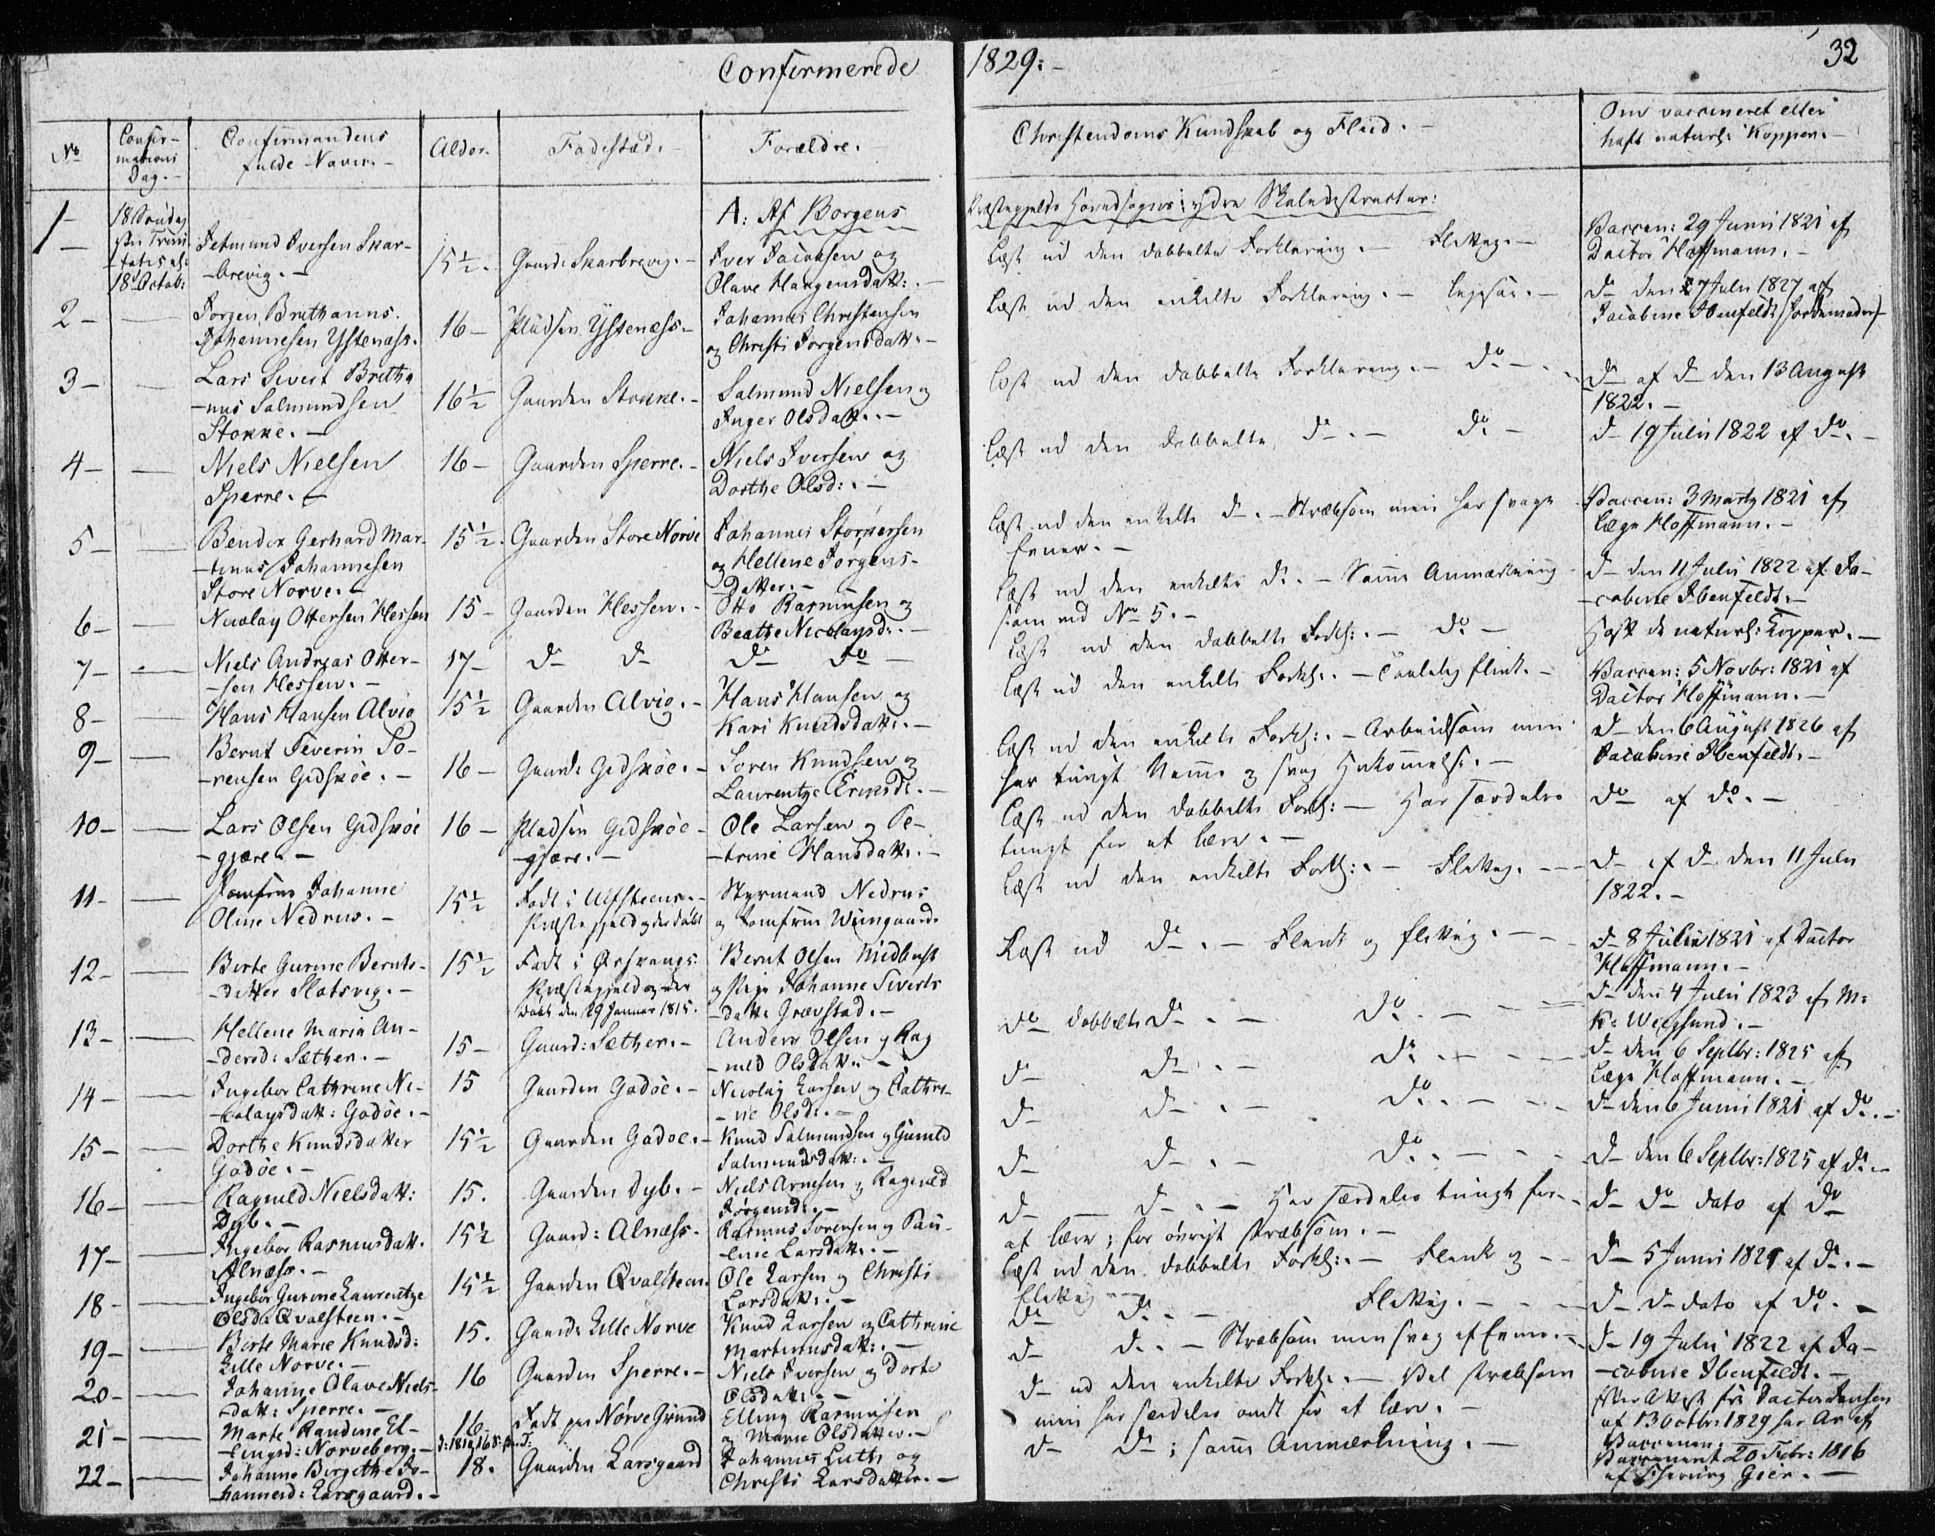 Confirmerede 1829:-
32
No
Confir-
mations
Dag.-
Confirmandens
fulde Navn.-
Alder.
Fødestæd.-
Forældre.-
Christendoms Kundskab og Fliid.-
Om vaccineret eller
haft naturl: Kopper.-
A: Af Borgens
Præstegjelds Hovedsogns ydre Skoledistricter:
1-
18 Søndag
efter Trini-
tatis
18 Octob:
Jetmund Iversen Skar-
-brevig.-
15½.
Gaard: Skarbrevig.-
Iver Jacobsen og
Olave Haagensdatt:.-
Læst ud den dobbelte Forklaring.- Flittig.-
Vaccin: 29 Juni 1821 af
Doctor Hoffmann.-
2-
Jørgen Brithanus
Johannesen Ystenæss.
16-
Pladsen Ystenæss-
Johannes Christensen
og Christi Jørgensdatt:-
Læst ud den enkelte Forklaring.-
do den 27 Julii 1827 af
Jacobine Ibenfeldt (Jordemoder)-
3-
Lars Sivert Britha
-nus Salmundsen
Stokke.-
16½
Gaarden Stokke.-
Salmund Nielsen og
Inger Olsdatt.-
Læst ud den dobbelte Forklaring.- Do-
Do af Do den 13 August
1822.-
4-
Niels Nielsen
Sperre.-
16-
Gaarden Sperre.-
Niels Iversen og
Dorthe Olsd:.-
Læst ud den dobbelte Do.- Do-
Do 19 Julii 1822 af Do.-
5-
Bendix Gerhard Mar-
-tinus Johannesen
Store Nørve.-
15½.
Gaarden Store Nørve
Johannes Størkersen
og Hellene Jørgens-
Datter.-
Læst ud den enkelte Do.- Stræbsom men har svage
Evner.-
Vaccin: 3 Marty 1821 af
Læge Hoffmann.-
6-
Nicolay Ottersen Hessen
15-
Gaarden Hessen.-
Otto Rasmusen og
Beathe Nicolaysd:.-
Læst ud den enkelte Do.- Samme Anmærkning
som ved No 5.-
Do den 11 Julii 1822 af Ja-
-cobine Ibenfeldt.-
7-
Niels Andreas Otter-
-sen Hessen.-
17-
Do Do
Do Do-
Læst ud den dobbelte Forkl:.- Do-
Haft de naturl: Kopper.-
8-
Hans Hansen Alvig
15½
Gaarden Alvig.-
Hans Hansen og
Kari Knudsdatt:.-
Læst ud den enkelte Forkl:.- Taalelig flink.-
Vaccin: 5 Novbr: 1821 af
Doctor Hoffmann.-
9-
Bernt Severin Sø-
-rensen Gidskøe.-
16-
Gaard: Gidskøe.-
Søren Knudsen og
Laurentze Ericsdt.-
Læst ud den enkelte Forkl:.- Arbeidsom men
har tungt Nemme og svag Hukommelse.-
Do den 6 August 1826 af
Jacobine Ibenfeldt.-
10-
Lars Olsen Gidskøe
-gjære.-
16-
Pladsen Gidskøe
-gjære.-
Ole Larsen og Pe-
-trine Hansdatt:.-
Læst ud den dobbelte Forkl:.- Har særdeles
tungt for at lære.-
Do af Do.-
11-
Jomfrue Johanne
Oline Nedrus.-
15½
Født i Ulfsteens-
Præstegjeld og der døbt
Styrmand Nedrus
og Jomfrue Wiingaard.
Læst ud den enkelte Forkl:.- Flittig.-
Do af Do den 11 Julii
1822.-
12-
Birte Gurine Bernts-
-datter Slotsvig.-
15½
Født i Ørskougs
Præstegjeld og der
døbt den 29 Januar 1815.
Bernt Olsen Midbust
og Pige Johanne Siverts
datt: Grævstad.-
Læst ud Do.- Flink og flittig.-
Do 8 Julii 1821 af Doctor
Hoffmann.-
13-
Hellene Maria An-
-dersd: Sæther.-
15-
Gaard: Sæther.-
Anders Olsen og Rag
-nild Olsdatt:-
Do dobbelte Do.- Do.-
Do den 4 Julii 1823 af M:
K: Weylund.-
14-
Ingebor Cathrine Ni-
-colaysdatt: Godøe.-
15
Gaarden Godøe.-
Nicolay Larsen og Cathri-
-ne Olsd:.-
Do Do.- Do.-
Do den 6 Septbr: 1825 af
Læge Hoffmann.-
15-
Dorthe Knudsdatter
Godøe.-
15½
Gaarden Godøe.-
Knud Salmundsen og Gunild
Salmundsdatt:.-
Do Do.- Do.-
Do den 6 Junii 1821 af Do.-
16-
Ragnild Nielsdatt:
Dyb.-
15.
Gaarden Dyb.-
Niels Arnesen og Ragnild
Jørgensd:.-
Do Do.- Do.-
Do den 6 Septbr: 1825 af Do.-
17-
Ingebor Rasmusdatt.
Alnæss.-
15½
Gaard: Alnæss-
Rasmus Sørensen og Pau-
-line Larsdatt:.-
Do Do.- Har særdeles tungt for
at lære; for øvrigt stræbsom.-
Do Do dato af Do
18-
Ingebor Gurine Laurentze
Olsdt Qvalsteen.-
15½
Gaarden Qvalsteen.
Ole Larsen og Christi
Larsdatt:.-
Læst ud den dobbelte Forkl:.- Flink og
flittig
Do 5 Junii 1821 af Do.-
19-
Birte Marie Knudsd:
Lille Nørve.-
15.
Gaard: Lille Nørve
Knud Larsen og Cathrine
Martinusdatt:.-
Do Do.- Flittig.-
Do Do dato af Do.-
20-
Johanne Olave Niels-
-datt: Sperre.-
16
Gaarden Sperre.-
Niels Iversen og Dorte
Olsdatt:-
Do Do.- Stræbsom men svag af Evner.-
Do 19 Julii 1822 af Ja-
-cobine Ibenfeldt.-
21-
Marte Randine El-
-lingsd: Nørveberg.-
16
Født paa Nørve Grund
Elling Rasmusen
og Marie Olsdatter.-
Do ud den enkelte Forkl:.- Vel stræbsom
men har særdeles ondt for at lære.-
efter Attest fra Doctor Jensen
af 13 Octbr 1829 har Ar af
Vaccinen:
22-
Johanne Birgethe Jo-
hannesd: Larsgaard.-
18.
Gaarden Larsgaard
Johannes Luth og
Christi Larsdatter.-
Do Do; samme Anmærkning.-
Vaccineret 20 Febr: 1816